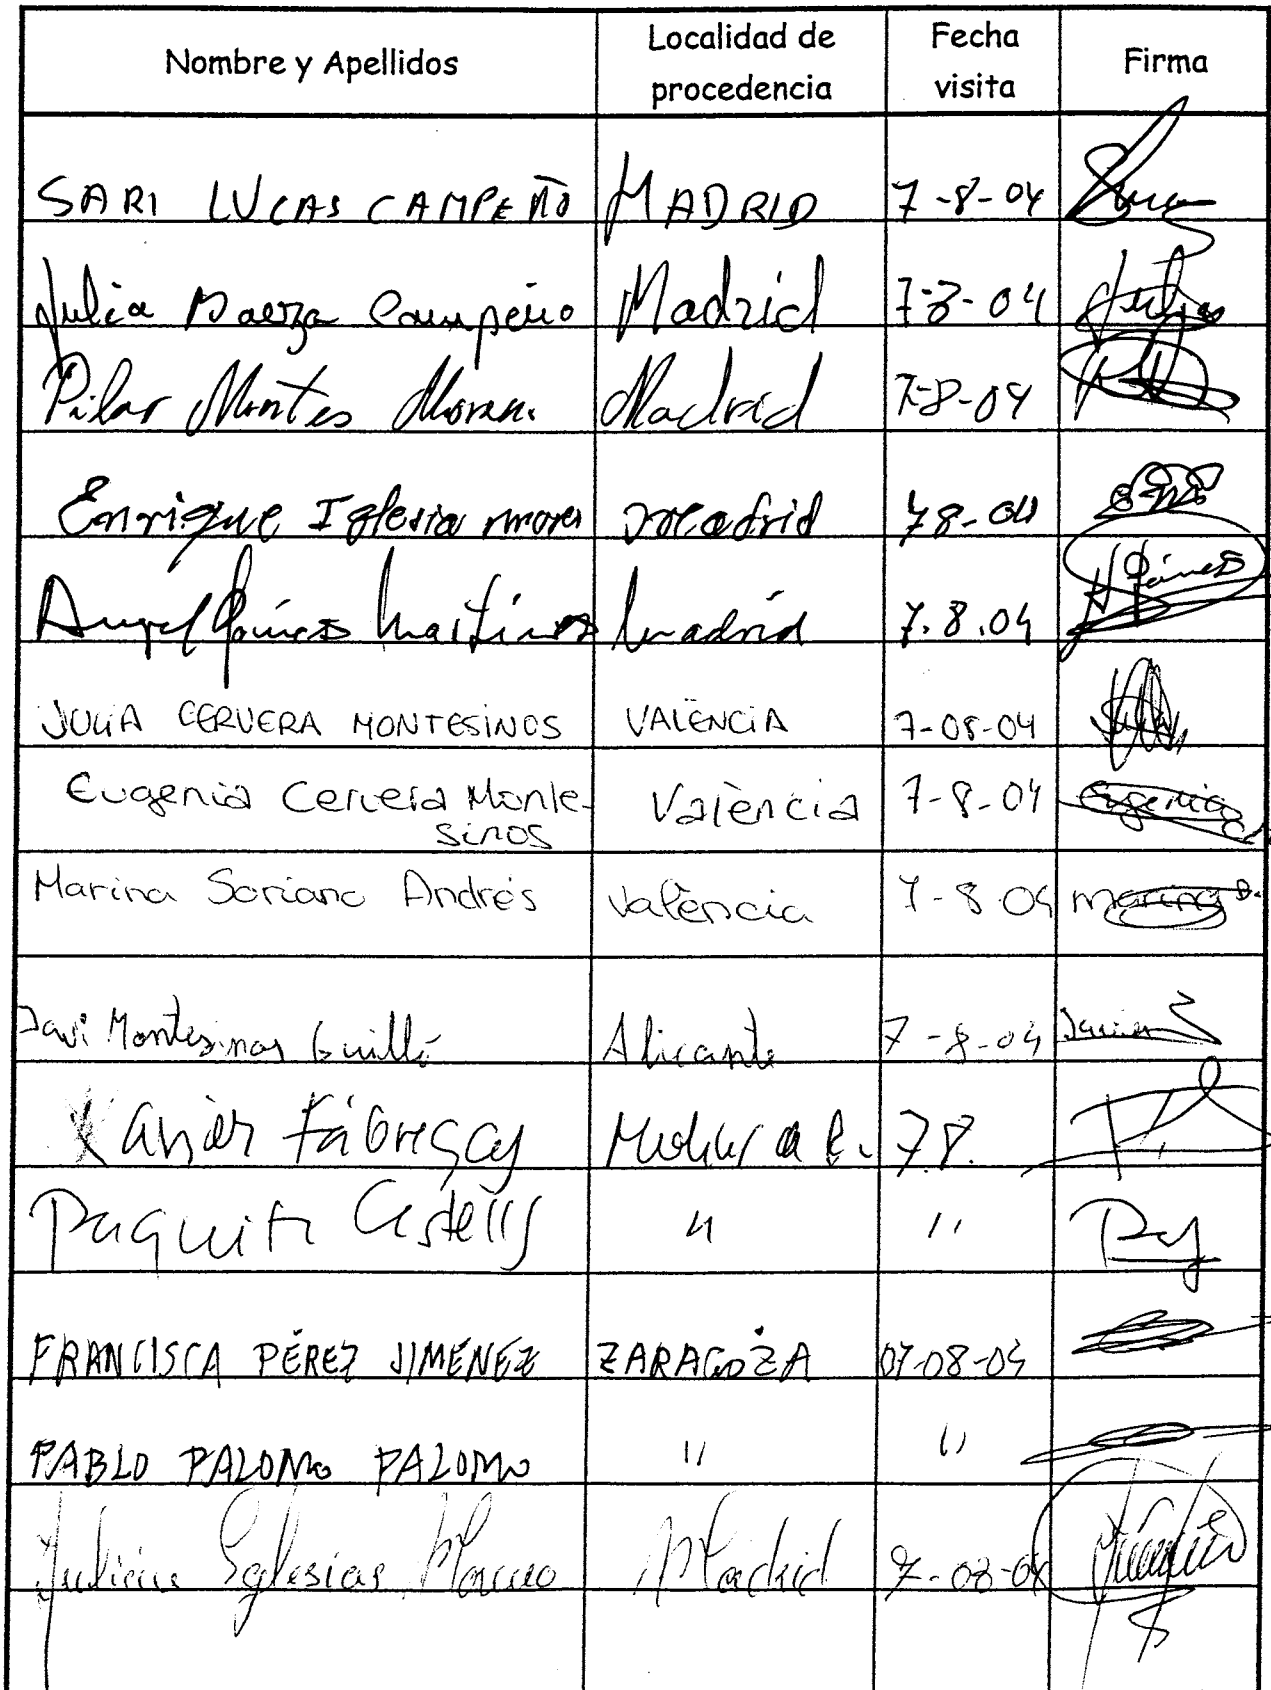 Nombre y Apellidos Localidad de procedencia Fecha visita Firma
SARI LUCAS CAMPEÑO MADRID 7-8-04
Julia Baeza Campeño Madrid 7-8-04 Julia
Pilar Montes Moran. Madrid 7-8-04
Enrique Iglesia Madrid 7 8-04
Angel Martinez Madrid 7.8.04
JULIA CERVERA MONTESINOS VALÈNCIA 7-08-04
Eugenia Cervera Monte- València 7-8-04 Eugenia
sinos
Marina Soriano Andrés València 7-8-04 Marina S.
Javi Montesinos Guilló Alicante 7-8-04 Javier
Xavier Fàbregas 7.8.
Paquita Castells " " Paq
FRANCISCA PÉREZ JIMÉNEZ ZARAGOZA 07-08-04
PABLO PALOMO PALOMO " "
Julián Iglesias Moreno Madrid 7-08-04